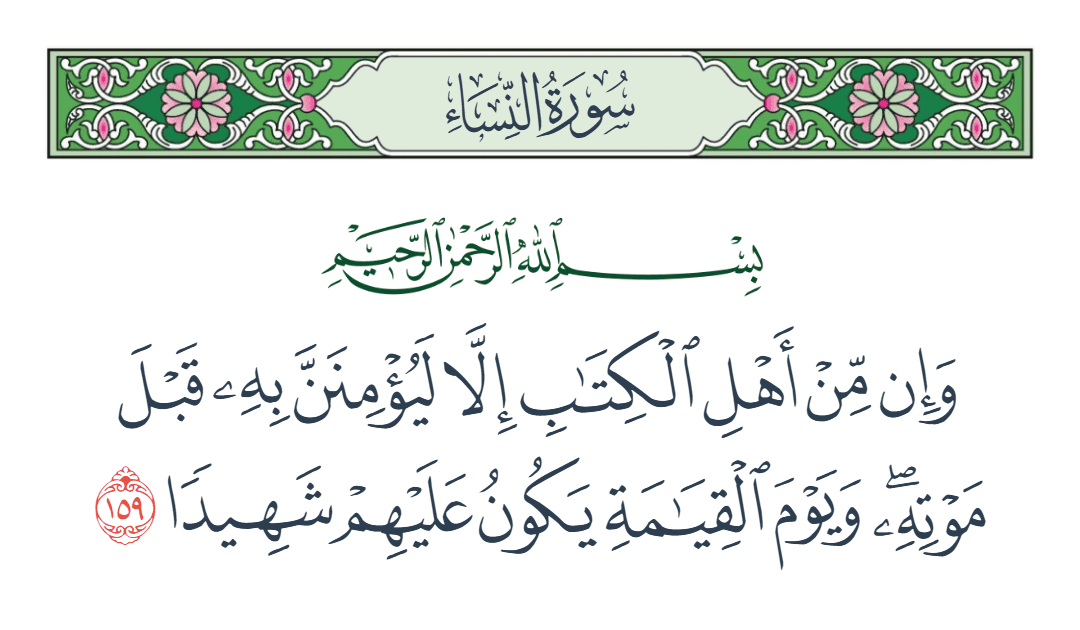 سُورَةُ النِّسَاءِ
بِسْمِ ٱللَّهِ ٱلرَّحْمَٰنِ ٱلرَّحِيمِ
وَإِن مِّنْ أَهْلِ ٱلْكِتَـٰبِ إِلَّا لَيُؤْمِنَنَّ بِهِۦ قَبْلَ
مَوْتِهِۦۖ وَيَوْمَ ٱلْقِيَـٰمَةِ يَكُونُ عَلَيْهِمْ شَهِيدًا ١٥٩